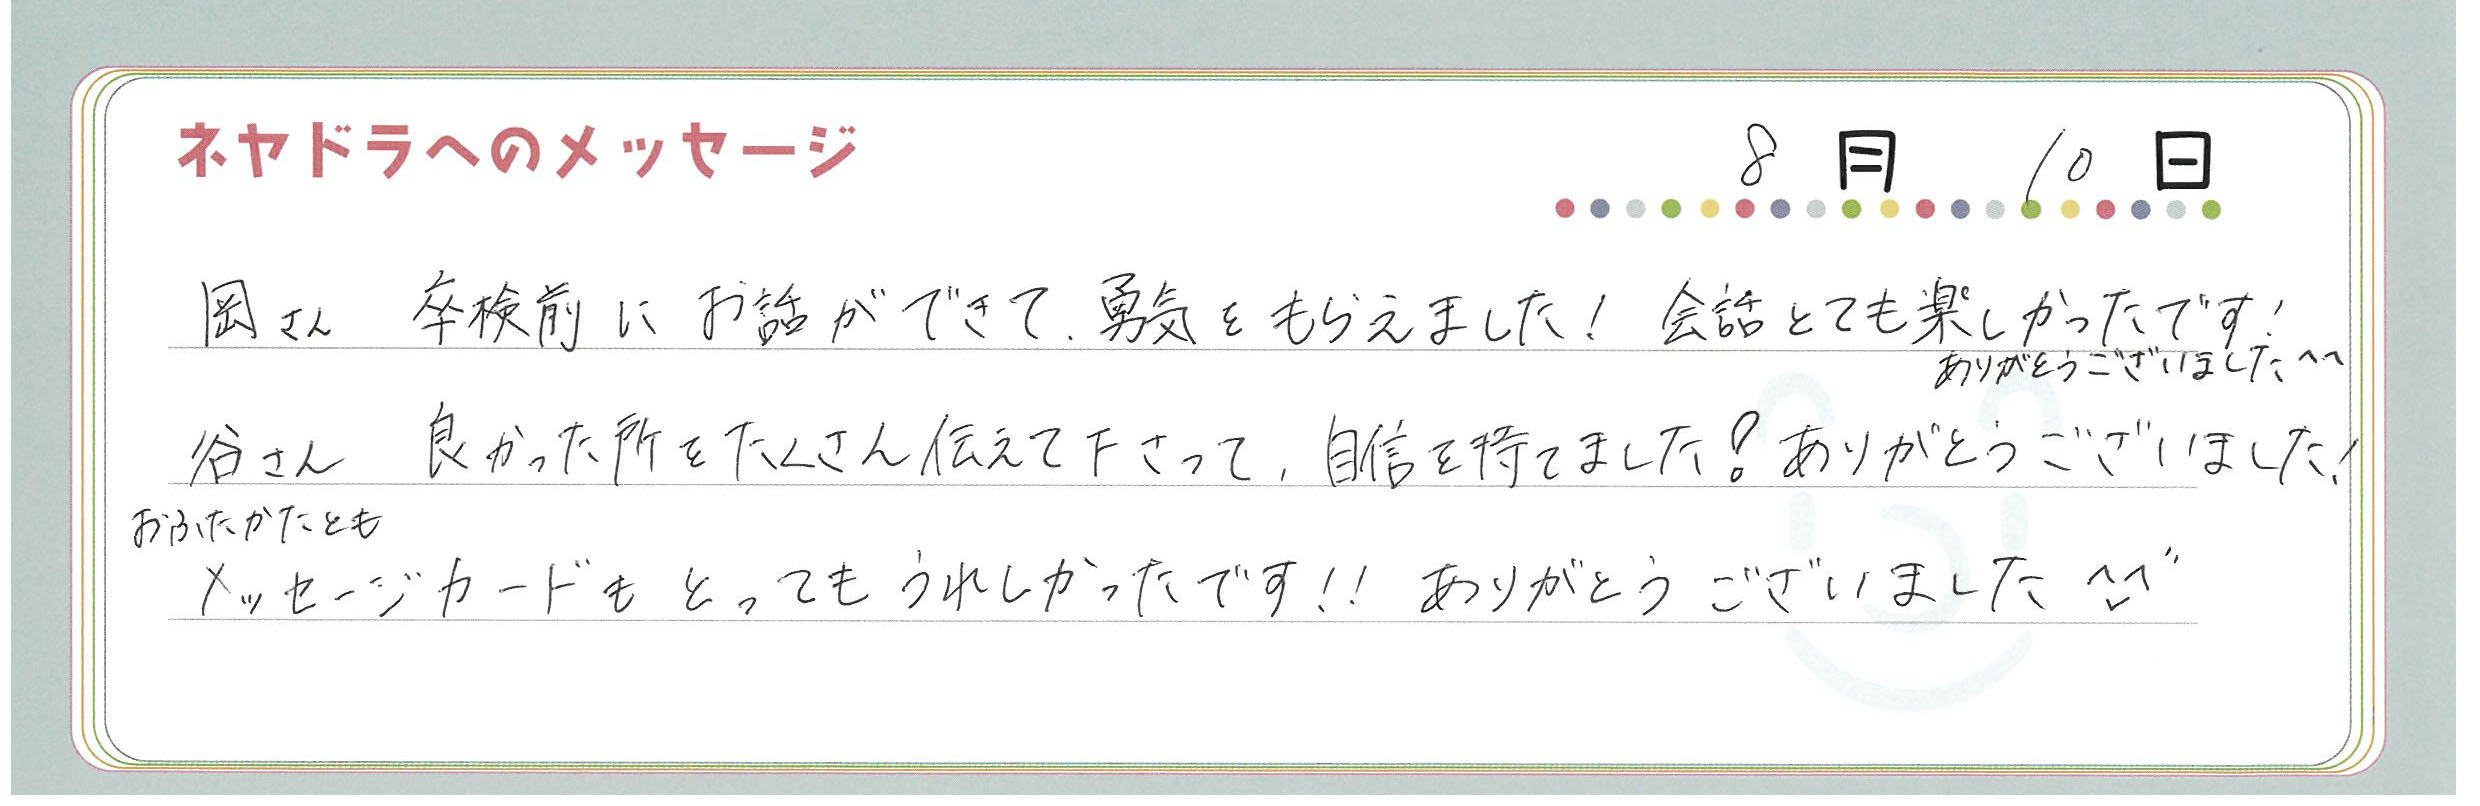 ネヤドラへのメッセージ
8月 10日
岡さん 卒検前に お話ができて、勇気をもらえました! 会話とても楽しかったです!
ありがとうございました^^
谷さん 良かった所をたくさん伝えて下さって、自信を持てました! ありがとうございました!
おふたかたとも
メッセージカードも とっても うれしかったです!! ありがとう ございました